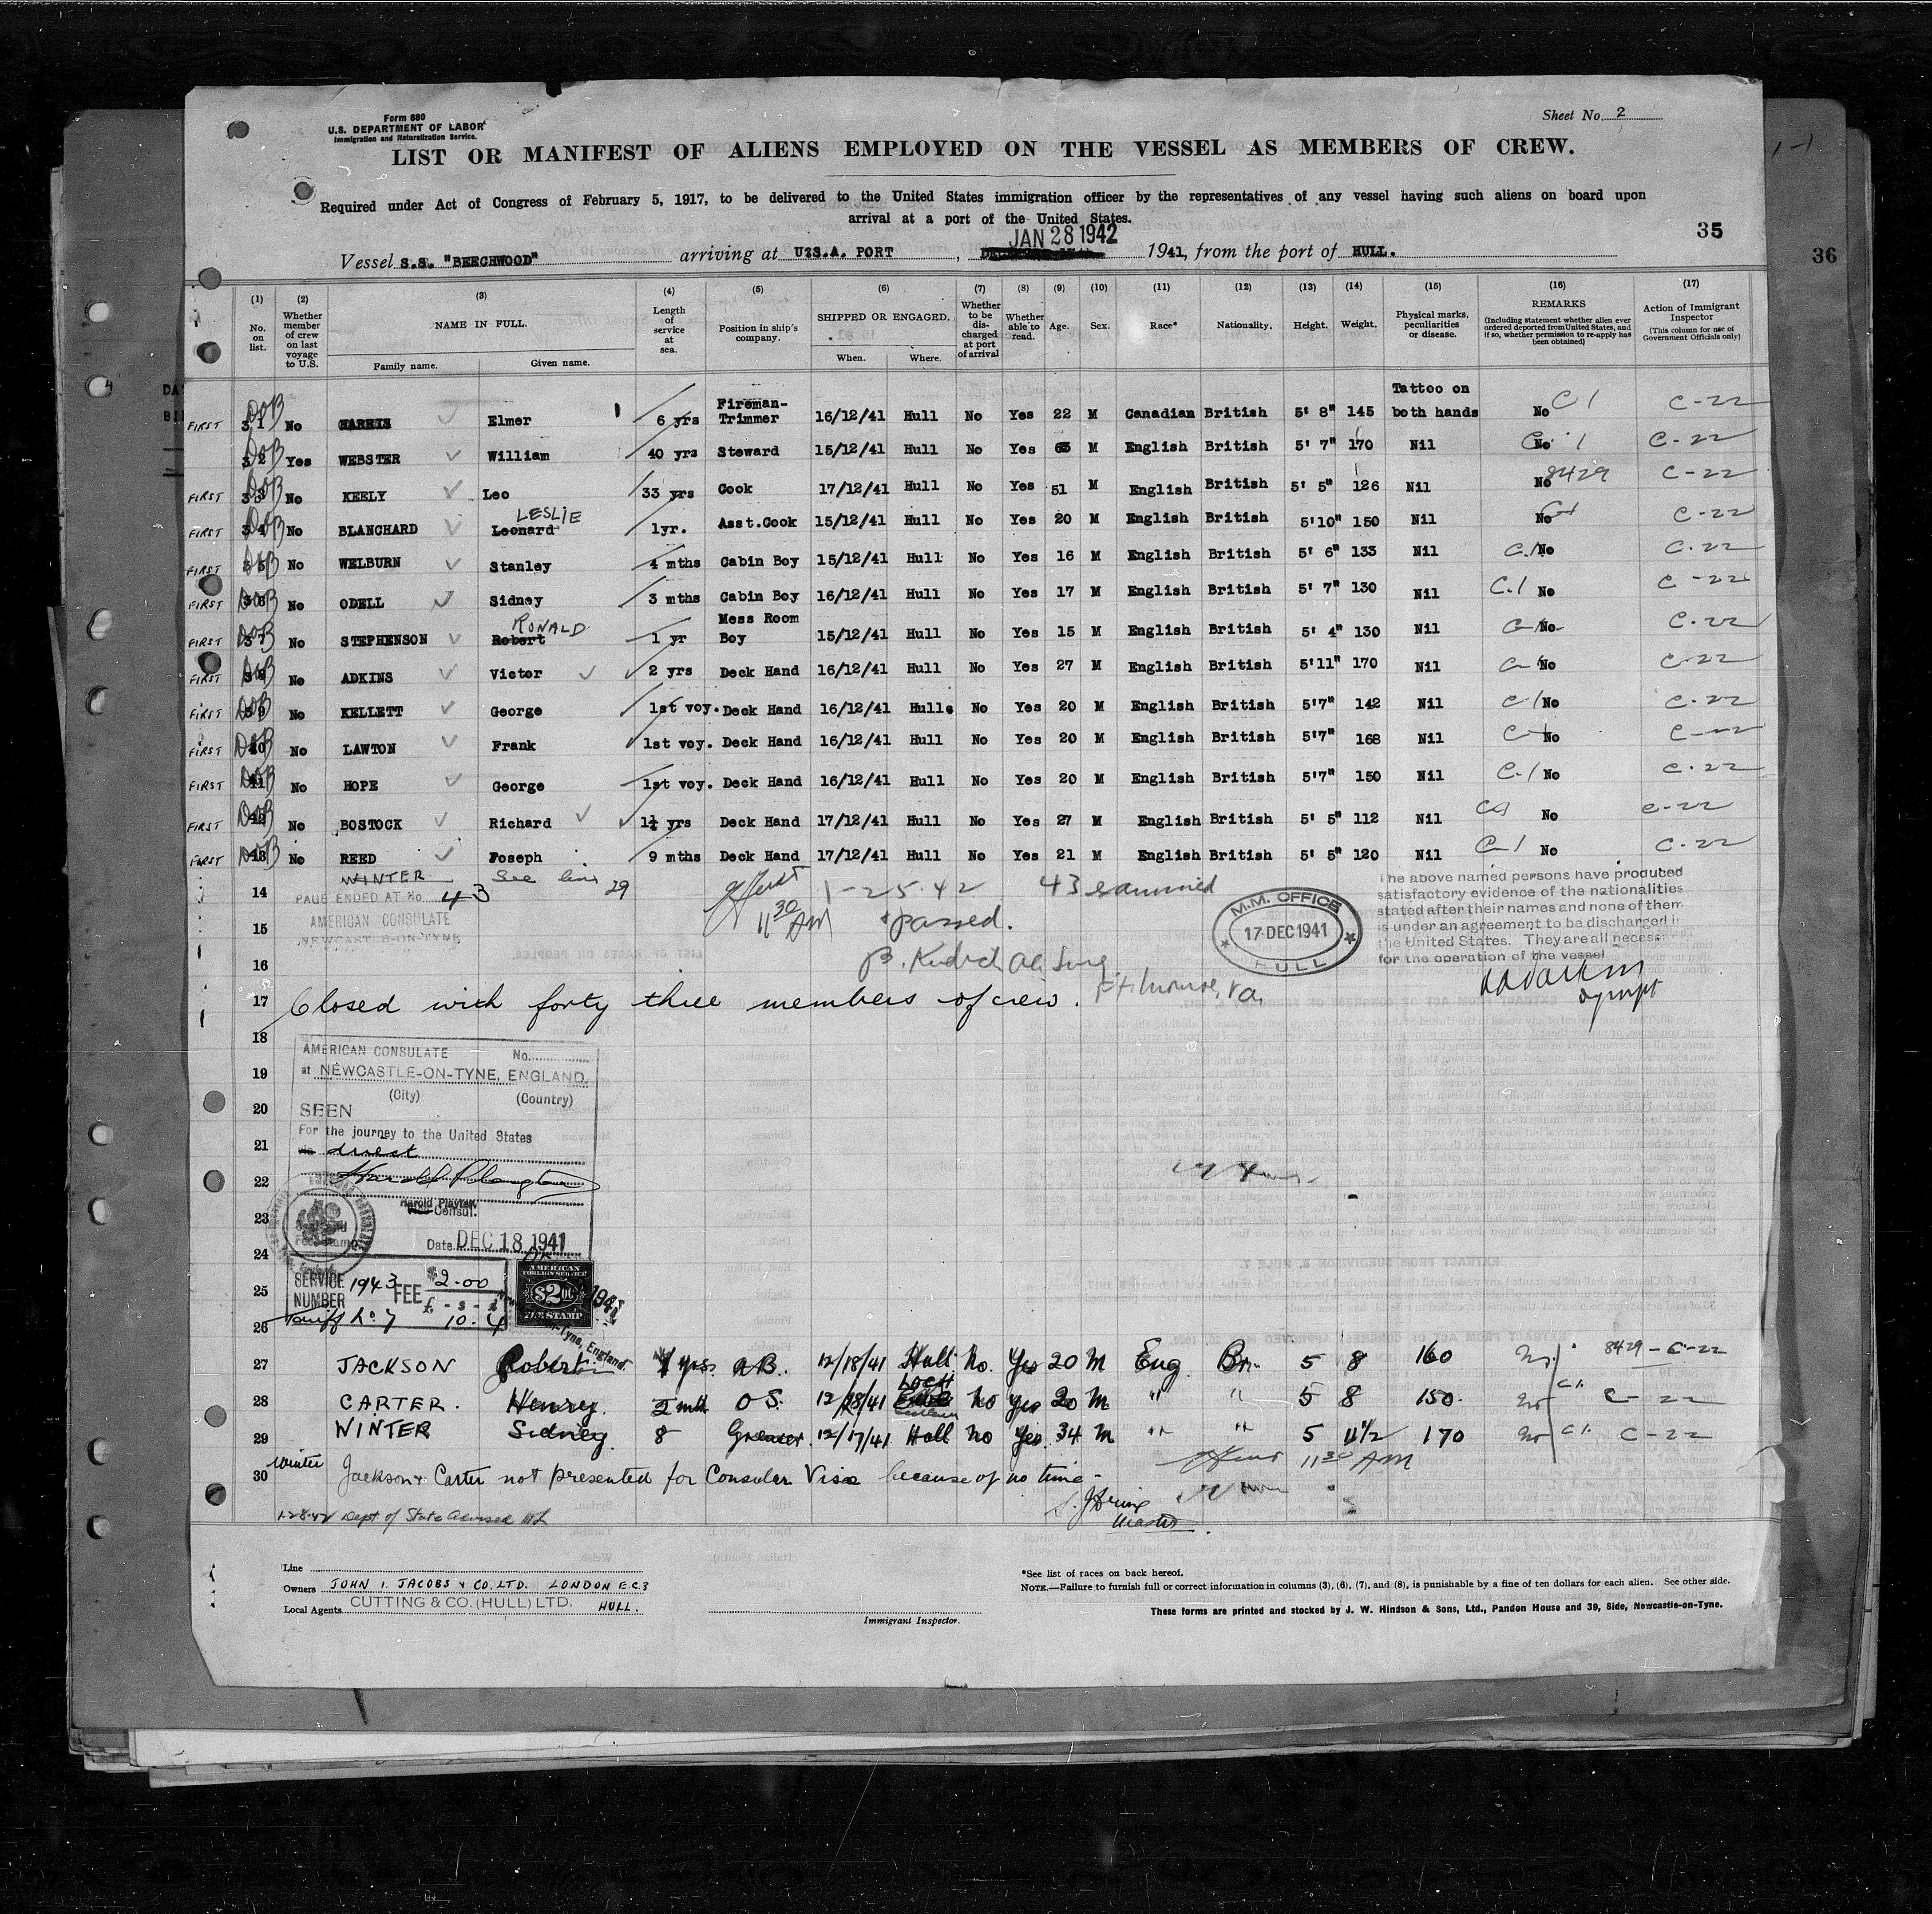 Form 680
U.S. DEPARTMENT OF LABOR
Immigration and Naturalization Service.
Sheet No. 2
LIST OR MANIFEST OF ALIENS EMPLOYED ON THE VESSEL AS MEMBERS OF CREW.
Required under Act of Congress of February 5, 1917, to be delivered to the United States immigration officer by the representatives of any vessel having such aliens on board upon
arrival at a port of the United States.
35
36
JAN 28 1942
Vessel S.S. "BEECHWOOD" arriving at U.S.A. PORT, 1941, from the port of HULL.
(1) No. on list.
(2) Whether member of crew on last voyage to U.S.
(3) NAME IN FULL. Family name. Given name.
(4) Length of service at sea.
(5) Position in ship's company.
(6) SHIPPED OR ENGAGED. When. Where.
(7) Whether to be discharged at port of arrival
(8) Whether able to read.
(9) Age.
(10) Sex.
(11) Race*
(12) Nationality.
(13) Height.
(14) Weight.
(15) Physical marks, peculiarities or disease.
(16) REMARKS (Including statement whether alien ever ordered deported from United States, and if so, whether permission to re-apply has been obtained)
(17) Action of Immigrant Inspector (This column for use of Government Officials only)
FIRST 31 No HARRIS Elmer 6 yrs Fireman-Trimmer 16/12/41 Hull No Yes 22 M Canadian British 5' 8" 145 Tattoo on both hands No C1 C-22
32 Yes WEBSTER William 40 yrs Steward 15/12/41 Hull No Yes 63 M English British 5' 7" 170 Nil No C-22
FIRST 33 No KEELY Leo 33 yrs Cook 17/12/41 Hull No Yes 51 M English British 5' 5" 126 Nil No 8429 C-22
FIRST 34 No BLANCHARD Leonard LESLIE 1yr. Asst.Cook 15/12/41 Hull No Yes 20 M English British 5'10" 150 Nil No C-22
FIRST 35 No WELBURN Stanley 4 mths Cabin Boy 15/12/41 Hull No Yes 16 M English British 5' 6" 133 Nil C.1 No C-22
FIRST 36 No ODELL Sidney 3 mths Cabin Boy 16/12/41 Hull No Yes 17 M English British 5' 7" 130 Nil C.1 No C-22
FIRST 37 No STEPHENSON Robert RONALD 1 yr Mess Room Boy 15/12/41 Hull No Yes 15 M English British 5' 4" 130 Nil No C-22
FIRST 38 No ADKINS Victor 2 yrs Deck Hand 16/12/41 Hull No Yes 27 M English British 5'11" 170 Nil No C-22
FIRST 39 No KELLETT George 1st voy. Deck Hand 16/12/41 Hull. No Yes 20 M English British 5'7" 142 Nil C1 No C-22
FIRST 40 No LAWTON Frank 1st voy. Deck Hand 16/12/41 Hull No Yes 20 M English British 5'7" 168 Nil No C-22
FIRST 41 No HOPE George 1st voy. Deck Hand 16/12/41 Hull No Yes 20 M English British 5'7" 150 Nil C.1 No C-22
FIRST 42 No BOSTOCK Richard Deck Hand 17/12/41 Hull No Yes 27 M English British 5' 5" 112 Nil C1 No C-22
FIRST 43 No REED Joseph 9 mths Deck Hand 17/12/41 Hull No Yes 21 M English British 5' 5" 120 Nil C-1 No C-22
WINTER See line 29
14 PAGE ENDED AT No. 43
1-25-42 43 examined
15 AMERICAN CONSULATE
NEWCASTLE-ON-TYNE
11 30 AM & passed.
M.M. OFFICE
17 DEC 1941
HULL
The above named persons have produced
satisfactory evidence of the nationalities
stated after their names and none of them
is under an agreement to be discharged in
the United States. They are all necess
for the operation of the vessel
16
17 Closed with forty three members of crew. Ft. Monroe, Va.
18
AMERICAN CONSULATE No.
19 at NEWCASTLE-ON-TYNE, ENGLAND.
(City) (Country)
20 SEEN
For the journey to the United States
21 via direct
22
Harold Playter
23 Vice Consul.
Date DEC 18 1941
24
SERVICE NUMBER 1943 FEE $2.00
25
Tariff No. 7 £ - s - d 10. 4
26
AMERICAN
FOREIGN SERVICE
$2.00
FEE STAMP
27 JACKSON Robert yrs. A.B. 12/18/41 Hull No. Yes 20 M Eng Br. 5 8 160 No. 8429 - C-22
28 CARTER. Henry 2 mth O S. 12/28/41 LOCH No Yes 20 M " " 5 8 150. No C1. C-22
29 WINTER Sidney 8 Greaser 12/17/41 Hull No Yes 34 M " " 5 11 1/2 170 No C1. C-22
11 30 AM
30 Winter Jackson & Carter not presented for Consular Visa because of no time -
Master.
1-28-42 Dept of State advised
Line
Owners JOHN I. JACOBS & CO. LTD. LONDON E.C.3
Local Agents CUTTING & CO. (HULL) LTD. HULL.
Immigrant Inspector.
*See list of races on back hereof.
NOTE.—Failure to furnish full or correct information in columns (3), (6), (7), and (8), is punishable by a fine of ten dollars for each alien. See other side.
These forms are printed and stocked by J. W. Hindson & Sons, Ltd., Pandon House and 39, Side, Newcastle-on-Tyne.